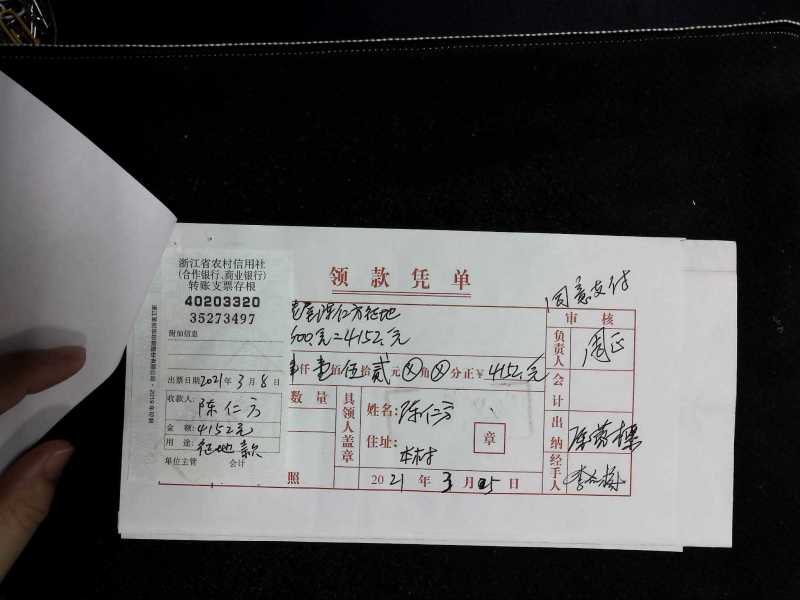 浙江省农村信用社
(合作银行、商业银行)
转账支票存根
40203320
35273497
附加信息
出票日期2021年3月8日
收款人:
陈仁方
金 额:4152元
用 途:征地款
单位主管 会计
领款凭单
陈仁方征地
500元=4152元
仟壹佰伍拾贰元⊗角⊗分正¥4152元
数量
照
具领人盖章
姓名:陈仁方
住址:
本村
章
2021年3月05日
同意支付
审核
负责人
周正
会计
出纳
经手人